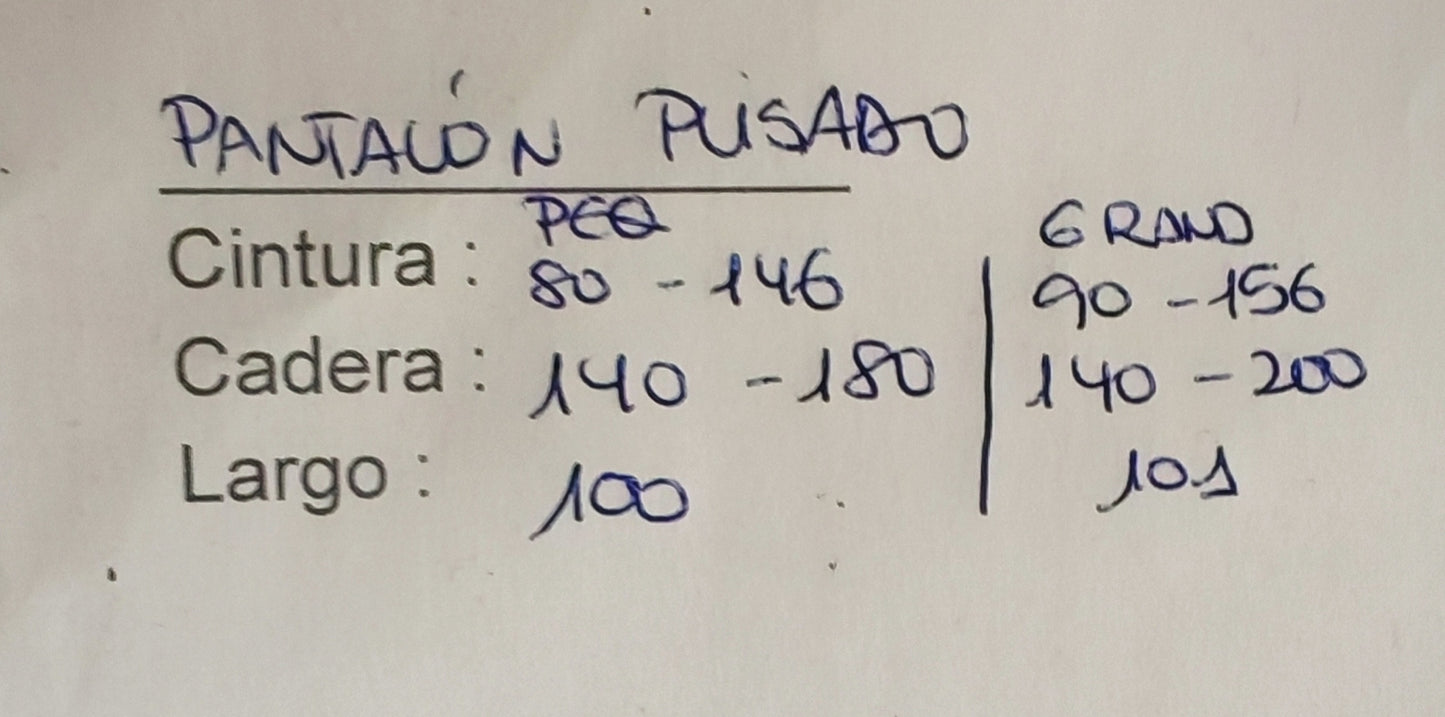 PANTALÓN PLISADO
PEQ GRAND
Cintura : 80 - 146 | 90 - 156
Cadera : 140 - 180 | 140 - 200
Largo : 100 | 101